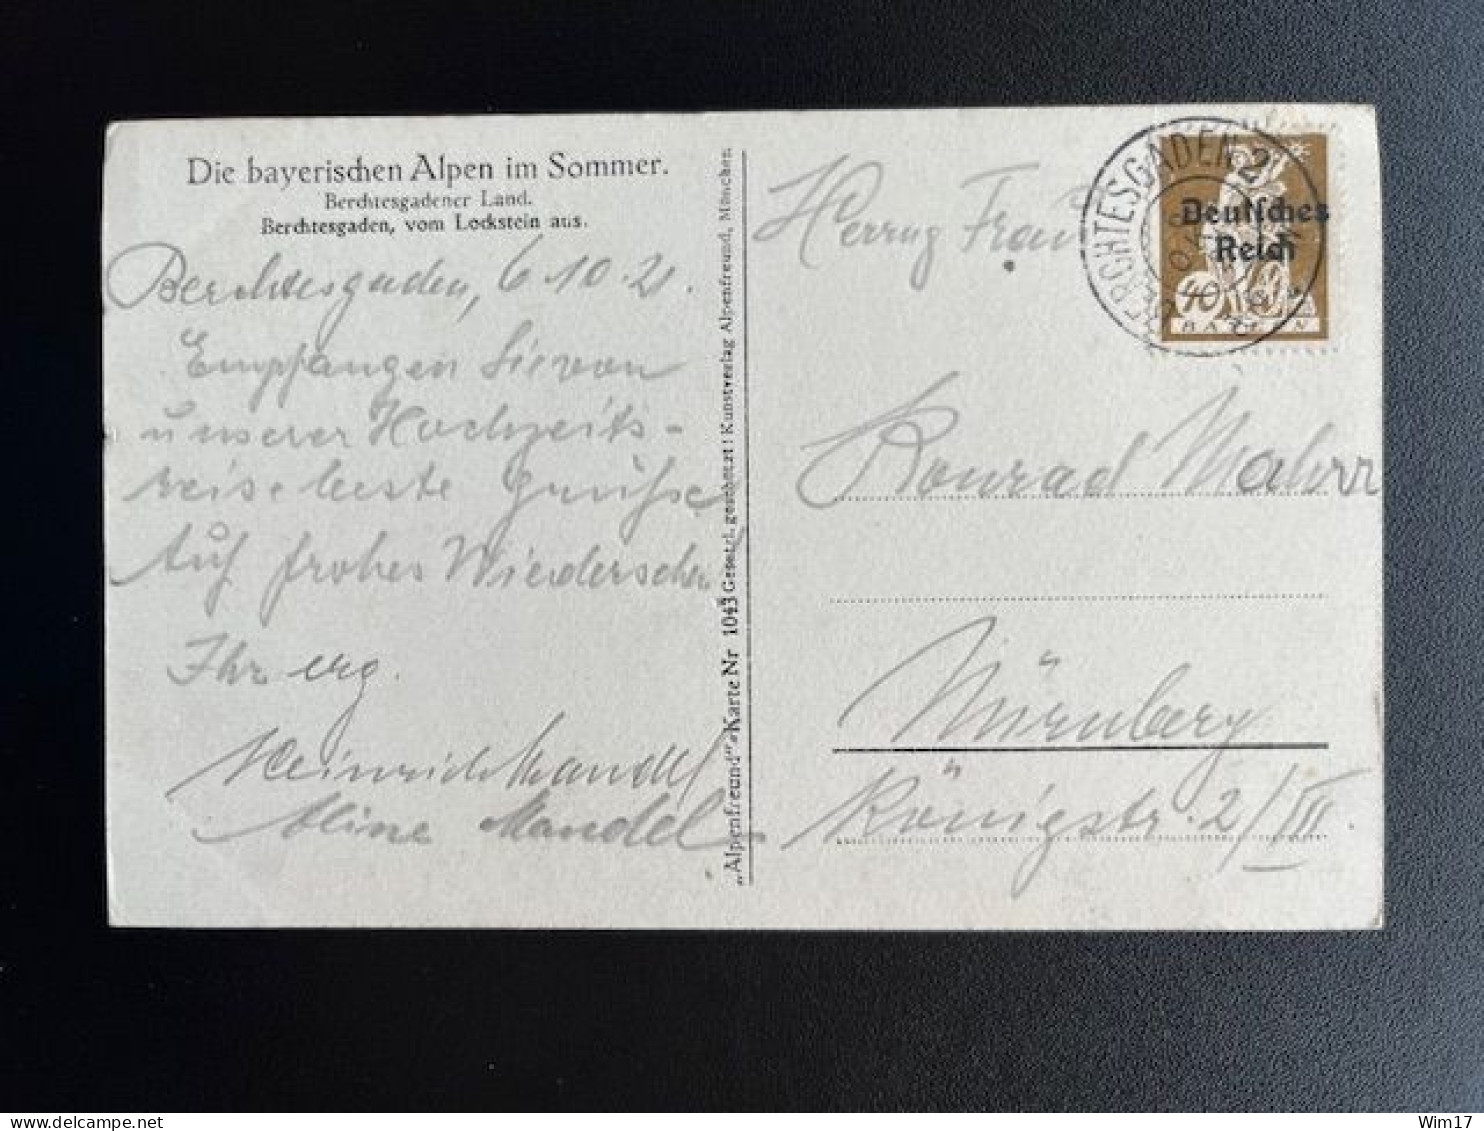 Die bayerischen Alpen im Sommer.
Berchtesgadener Land.
Berchtesgaden, vom Lockstein aus.
Berchtesgaden, 6.10.21.
Empfangen Sie von
unserer Hochzeits-
reise beste Grüße
Auf frohes Wiedersehen
Ihr erg.
Heinrich Mandel
Aline Mandel
„Alpenfreund"-Karte Nr 1043 Gesetzl. geschützt! Kunstverlag Alpenfreund, München.
BERCHTESGADEN 2
Deutsches
Reich
40
BAYERN
Herrn u Frau
Konrad
Nürnberg
Königstr. 2/III.
Wim17